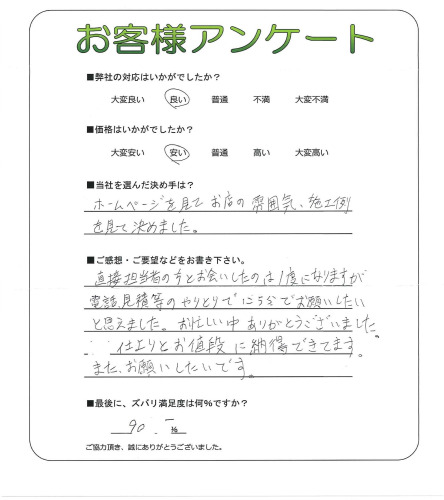 お客様アンケート
■弊社の対応はいかがでしたか？
大変良い 良い 普通 不満 大変不満
■価格はいかがでしたか？
大変安い 安い 普通 高い 大変高い
■当社を選んだ決め手は？
ホームページを見て お店の雰囲気、施工例
を見て決めました。
■ご感想・ご要望などをお書き下さい。
直接担当者の方とお会いしたのは1度になりますが
電話、見積等のやりとりで でお願いしたい
と思えました。お忙しい中 ありがとうございました。
仕上りとお値段に納得できてます。
また、お願いしたいです。
■最後に、ズバリ満足度は何%ですか？
90 %
ご協力頂き、誠にありがとうございました。